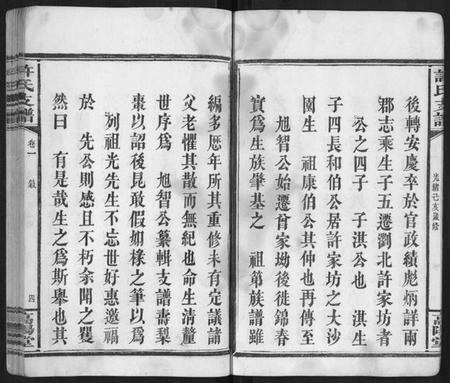 許氏支譜
光緒己亥歲修
高陽堂
後轉安慶卒於官政績彪炳詳兩
郡志乘生子五遷瀏北許家坊者
公之四子 子淇公也 淇生
子四長和伯公居許家坊之大沙
園生 祖康伯公其仲也再傳至
旭智公始遷曾家坳後徙錦春
實爲生族肇基之 祖第族譜雖
編多歷年所其重修未有定議諸
父老懼其散而無紀也命生清釐
世序爲 旭智公纂輯支譜壽梨
棗以詔後昆敢假如椽之筆以爲
列祖光先生不忘世好惠邀福
於 先公則感且不朽余聞之矍
然曰 有是哉生之爲斯舉也其
許氏支譜
卷一 敘
四
高陽堂